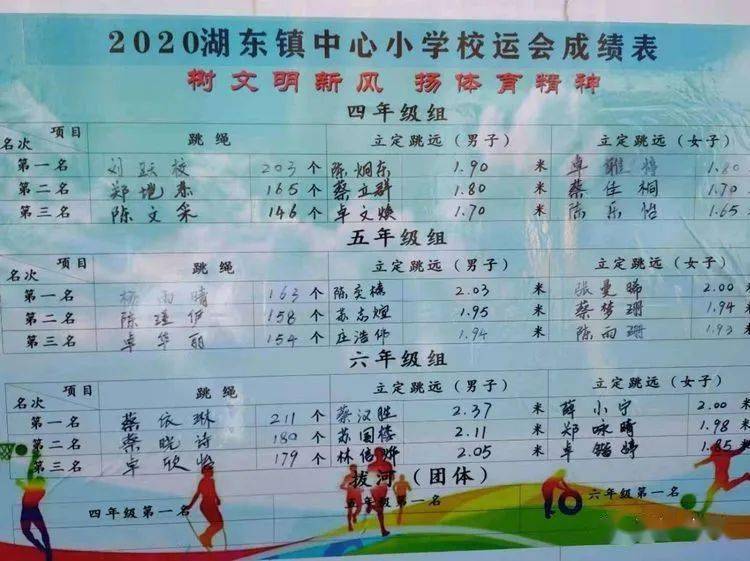 2020湖东镇中心小学校运会成绩表
树文明新风 扬体育精神
四年级组
项目 名次 跳绳 立定跳远（男子） 立定跳远（女子）
第一名 刘跃校 203 个 陈炯东 1.90 米 卓雅婷 1.80
第二名 郑地泰 165 个 蔡立群 1.80 米 蔡佳桐 1.70
第三名 陈文采 146 个 卓文焕 1.70 米 陈乐怡 1.65
五年级组
项目 名次 跳绳 立定跳远（男子） 立定跳远（女子）
第一名 杨雨晴 163 个 陈奕 2.03 米 张曼晞 2.00 米
第二名 陈瑾伊 158 个 苏志煌 1.95 米 蔡梦珊 1.94 米
第三名 卓华丽 154 个 庄浩伟 1.94 米 陈雨珊 1.93 米
六年级组
项目 名次 跳绳 立定跳远（男子） 立定跳远（女子）
第一名 蔡依琳 211 个 蔡汉胜 2.37 米 薛小宁 2.00 米
第二名 蔡晓诗 180 个 苏国德 2.11 米 郑咏晴 1.98 米
第三名 卓欣怡 179 个 林信烨 2.05 米 卓锴婷 1.85 米
拔河（团体）
四年级第一名 五年级第一名 六年级第一名